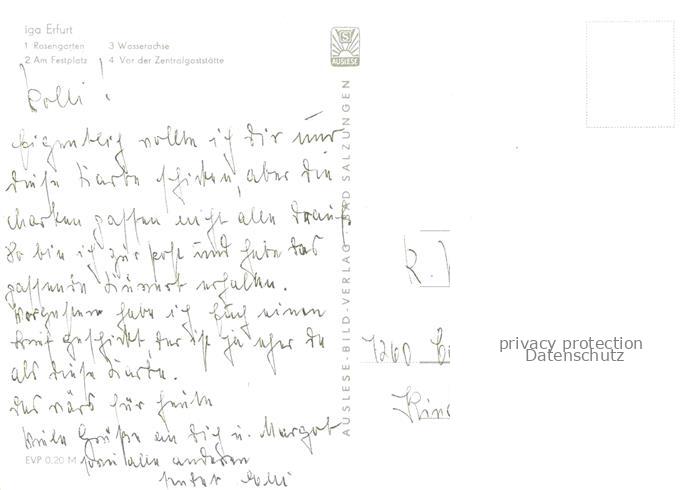 iga Erfurt
1 Rosengarten 3 Wasserachse
2 Am Festplatz 4 Vor der Zentralgaststätte
AUSLESE
Rolli!
Eigentlich wollte ich Dir nur
diese Karte schicken, aber die
Marken passen nicht alle drauf.
So bin ich zur Post und habe das
passende Kuvert erhalten.
Vorgestern habe ich Euch einen
Brief geschickt, der ist ja eher da
als diese Karte.
Das wärs für heute
Viele Grüße an Dich u. Margot
sowie alle anderen
AUSLESE-BILD-VERLAG · BAD SALZUNGEN
EVP 0,20 M
R.
7260
privacy protection
Datenschutz